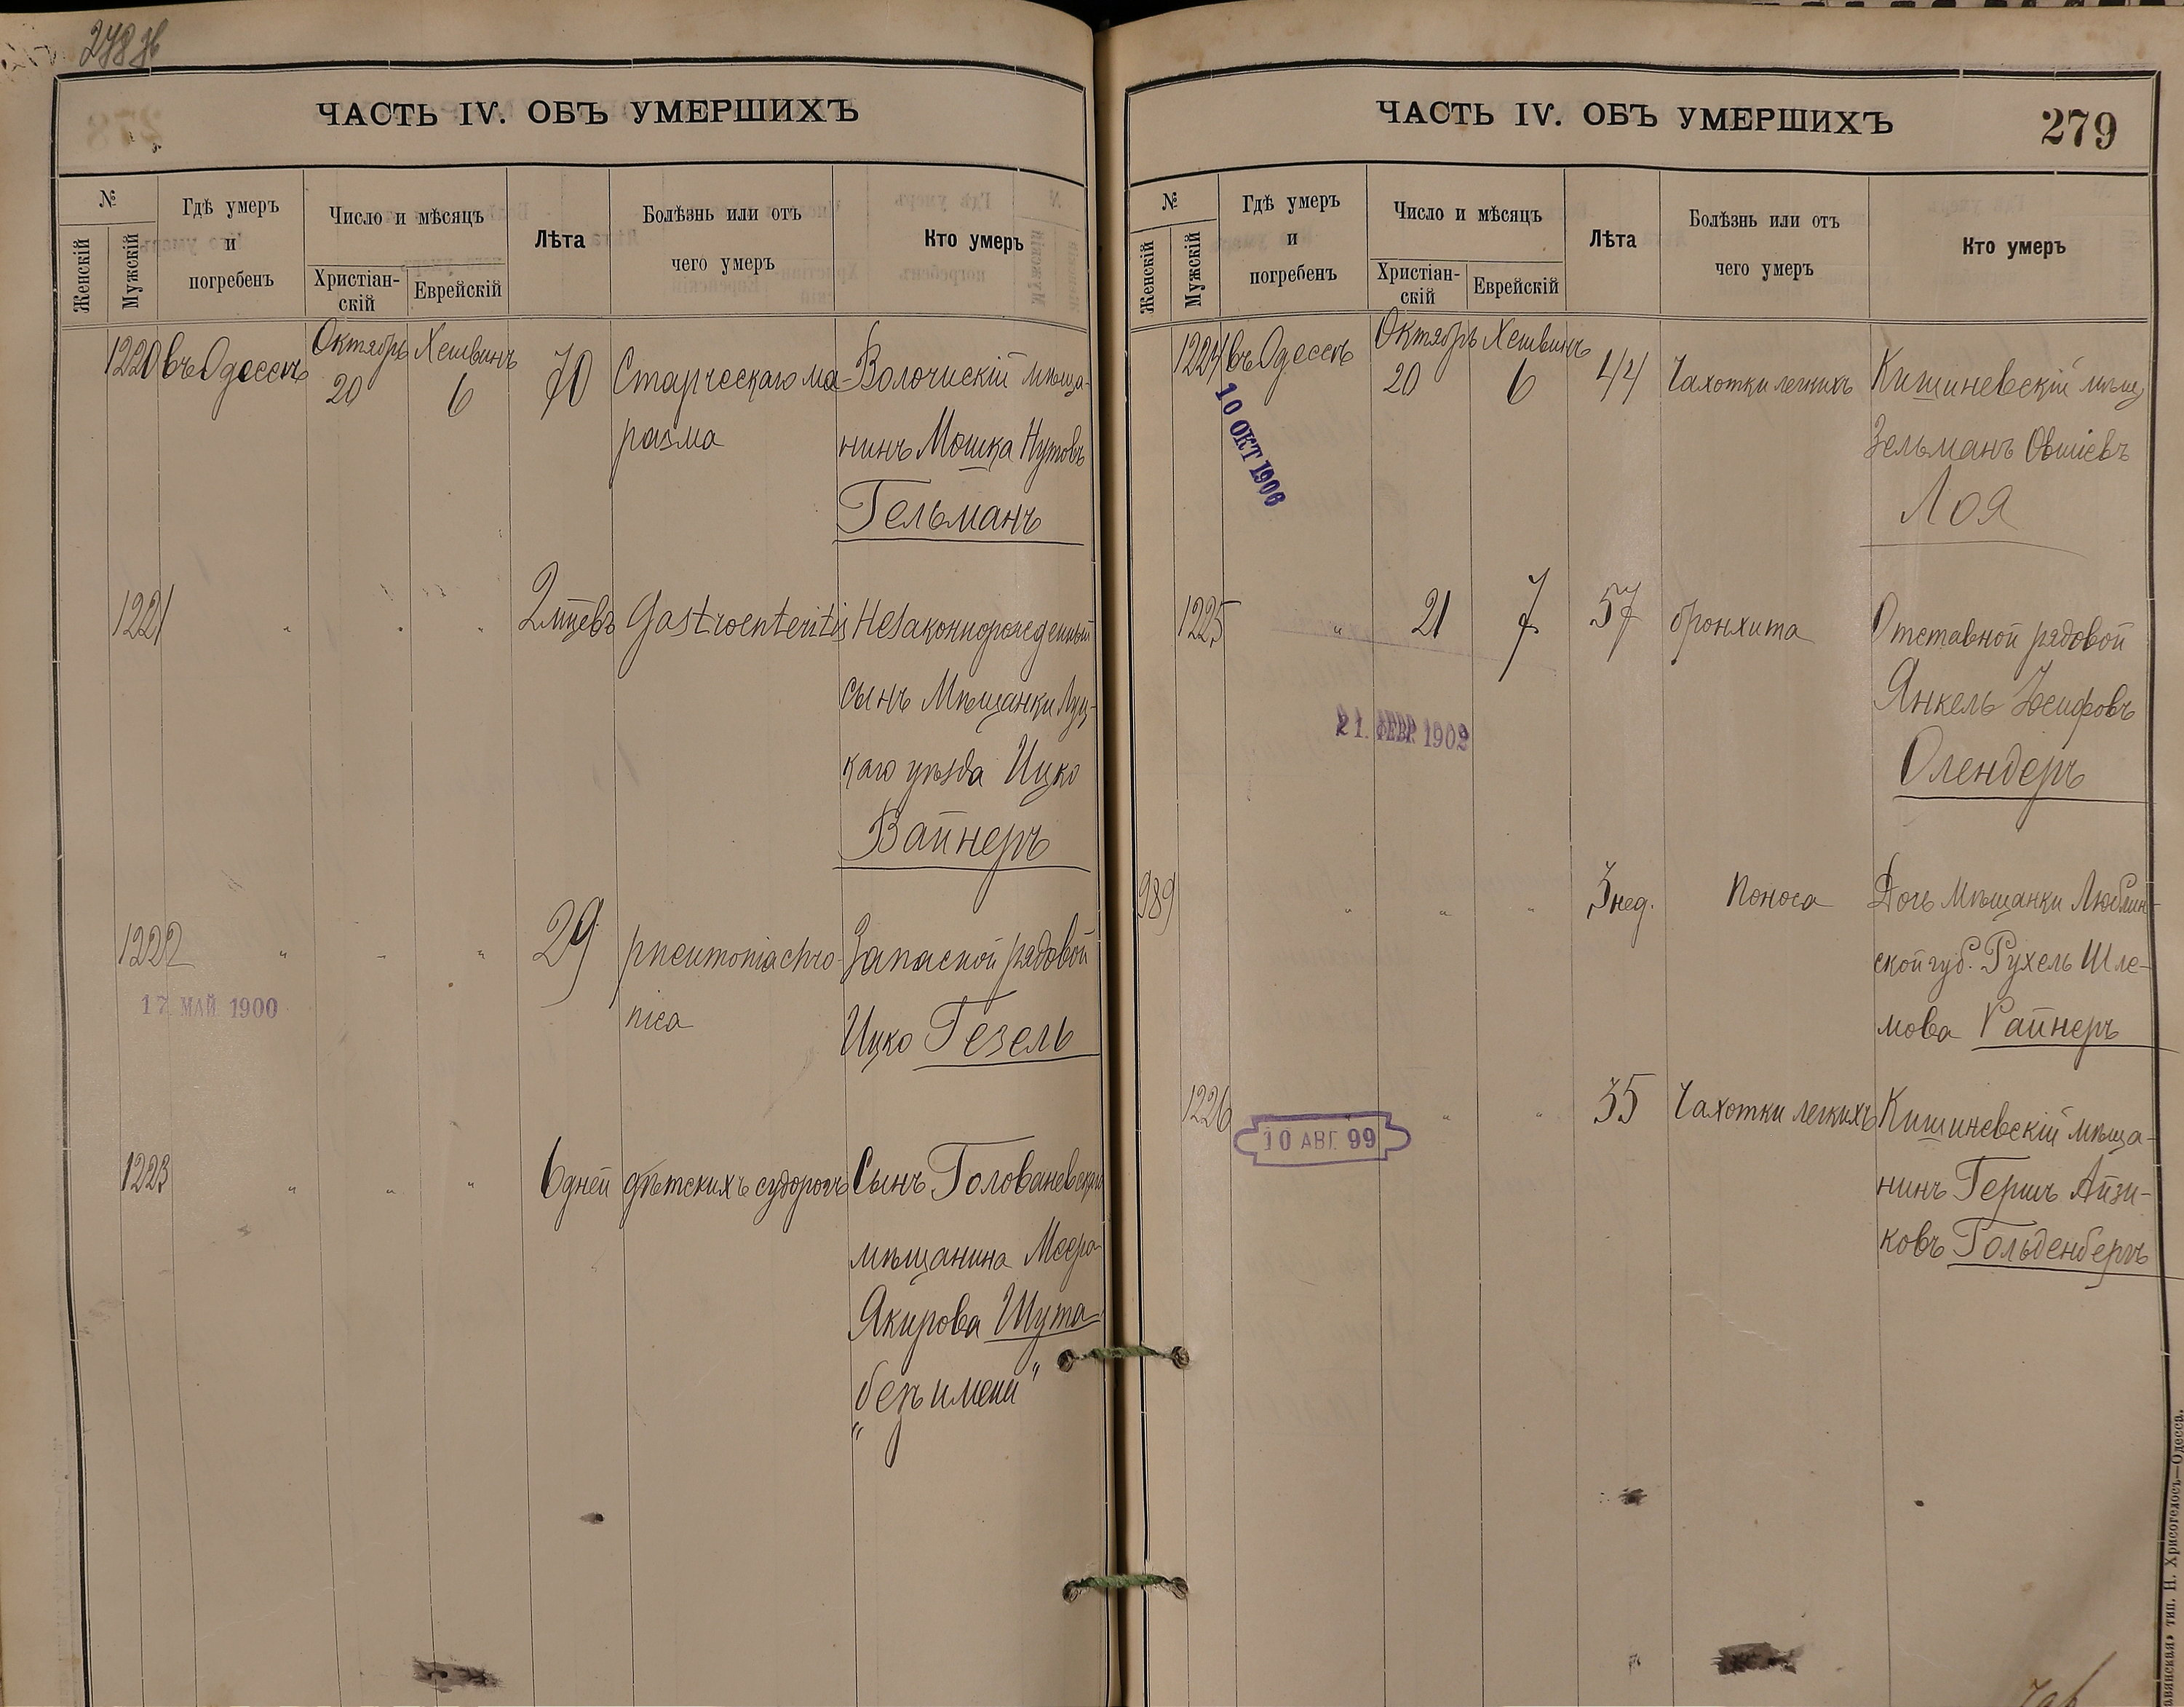 278 об
ЧАСТЬ IV. ОБЪ УМЕРШИХЪ
№
Женскій
Мужскій
Гдѣ умеръ
и
погребенъ
Число и мѣсяцъ
Христіан-
скій
Еврейскій
Лѣта
Болѣзнь или отъ
чего умеръ
Кто умеръ
1220 въ Одессѣ Октябрь 20 Хешвинъ 6 70 Старческаго ма- Волочискій мѣща-
разма нинъ Мошка Нутовъ
Гельманъ
1221 " " " 2 мцевъ Gastroenteritis Незаконнорожденный
сынъ Мѣщанки Луц-
каго уѣзда Ицко
Вайнеръ
1222 " " " 29 pneumonia chro- Запасной рядовой
17 МАЙ 1900
nica Ицко Гезель
1223 " " " 6 дней дѣтскихъ судорогъ Сынъ Голованевскаго
мѣщанина Меера
Якирова Шута
"безъ имени"
ЧАСТЬ IV. ОБЪ УМЕРШИХЪ
279
№
Женскій
Мужскій
Гдѣ умеръ
и
погребенъ
Число и мѣсяцъ
Христіан-
скій
Еврейскій
Лѣта
Болѣзнь или отъ
чего умеръ
Кто умеръ
1224 въ Одессѣ Октябрь 20 Хешвинъ 6 44 Чахотки легкихъ Кишиневскій мѣщ
10 ОКТ 1906
Зельманъ Овшіевъ
Лоя
1225 " 21 7 57 бронхита Отставной рядовой
Янкель Іосифовъ
21. ФЕВР. 1902
Олендеръ
989 " " " 3 нед. Поноса Дочь Мѣщанки Люблин-
ской губ. Рухель Шле-
мова Райнеръ
1226 " " " 35 Чахотки легкихъ Кишиневскій мѣща-
10 АВГ. 99
нинъ Гершъ Айзи-
ковъ Гольденбергъ
тип. Н. Хрисогелосъ—Одесса.